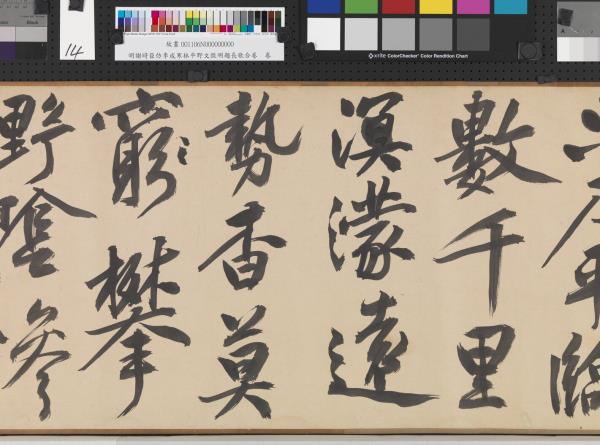 Black
14
故畫 001106N000000000
明謝時臣仿李成寒林平野文徵明題長歌合卷 卷
x-rite ColorChecker Color Rendition Chart
平臨
數千里
溟濛遠
勢香莫
窮攀
野